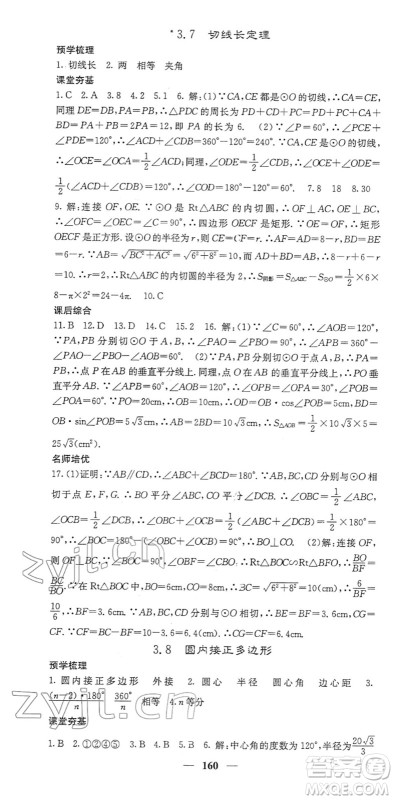 *3.7 切线长定理
预学梳理
1. 切线长 2. 两 相等 夹角
课堂夯基
1. C 2. A 3. 8 4. 16 5. 解:(1)∵CA,CE都是⊙O的切线,∴CA=CE,
同理DE=DB,PA=PB,∴△PDC的周长为PD+CD+PC=PD+PC+CA
+BD=PA+PB=2PA=12,即PA的长为6. (2)∵∠P=60°,∴∠PCE+
∠PDE=120°,∴∠ACD+∠CDB=360°-120°=240°.∵CA,CE是⊙O的切
线,∴∠OCE=∠OCA=1/2∠ACD;同理,∠ODE=1/2∠CDB,∴∠OCE+∠ODE=
1/2(∠ACD+∠CDB)=120°,∴∠COD=180°-120°=60°. 7. 8 8. 30
9. 解:连接OF,OE.∵⊙O为Rt△ABC的内切圆,∴OF⊥AC,OE⊥BC,∴
∠OFC=∠OEC=∠C=90°,∴四边形OECF是矩形.∵OF=OE,∴矩形
OECF是正方形.设⊙O的半径为r,则CE=CF=r.∴AF=AD=8-r,BD=
BE=6-r.∵AB=√(BC²+AC²)=√(6²+8²)=10,而AB=AD+BD,∴8-r+6
-r=10.∴r=2.∴⊙O是△ABC的内切圆,∴S阴影=S△ABC-S⊙O=1/2×6×
8-π·2²=24-4π. 10. C
课后综合
11. B 12. D 13. D 14. C 15. 2 16. 解:(1)∵∠C=60°,∴∠AOB=120°,
∵PA,PB分别切⊙O于点A,B,∴∠PAO=∠PBO=90°,∴∠APB=360°-
∠PAO-∠PBO-∠AOB=60°. (2)连接OP,∵PA,PB分别切⊙O于点A,B,
∴PA=PB,∴点P在AB的垂直平分线上.同理,点O也在线上,∴PO垂
直平分AB.∵∠APB=60°,∴∠AOB=120°,∴∠OPB=∠OPA=30°,∠POB=
∠POA=60°.∵PO=20 cm,∴OB=10 cm,∴OD=OB·cos∠POA=5 cm,BD=
OB·sin∠POA=5√3 cm,∴AB=2BD=10√3 cm,∴S△AOB=1/2×10√3×5=
25√3(cm²).
名师培优
17. (1)证明:∵AB∥CD,∴∠ABC+∠BCD=180°,∵⊙O与AB,BC,CD相
切,∴∠CBO=1/2∠ABC,∠BCO=1/2∠BCD,∴∠CBO+∠BCO=1/2(∠ABC
+∠BCD)=1/2×180°
=90°,∴∠BOC=180°-90°=90°,∴BO⊥CO. (2)解:连接OF,
则OF⊥BC,∵∠OBF=∠CBO,∠BFO=∠BOC=90°,∴Rt△BOF∽Rt△BCO,∴BO/BF=
BC/BO.∵在Rt△BOC中,BO=6 cm,CO=8 cm,∴BC=√(6²+8²)=10(cm),∴6/BF=
10/6,∴BF=3.6 cm.∵AB,BC,CD分别与⊙O相切,∴BE=BF=3.6 cm,CG=
CF,∵CF=BC-BF=10-3.6=6.4(cm).∴CG=CF=6.4 cm.
3.8 圆内接正多边形
预学梳理
1. 圆内接正多边形 外接 2. 圆心 半径 圆心角 边心距 3.
(n-2)·180°/n 360°/n 相等 4. n等分
课堂夯基
1. B 2. ①④⑤ 3. D 4. B 5. B 6. 解:中心角的度数为120°,半径为20√3/3
160
zyjl.cn
zyjl.cn
答案圈
MXQE.COM